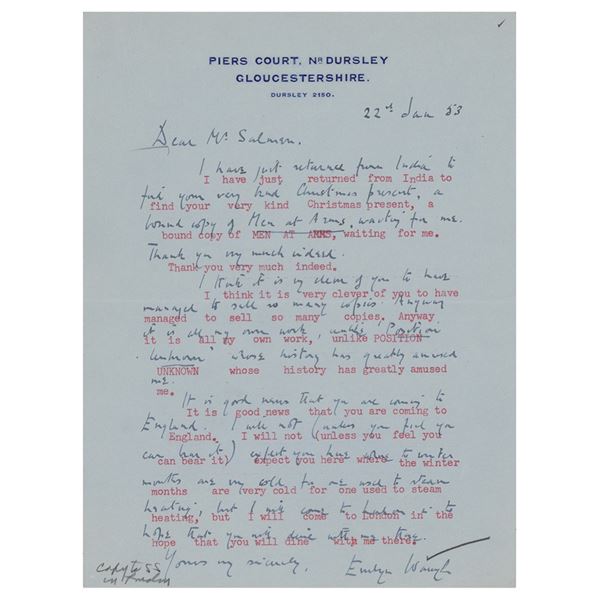 ✓
PIERS COURT, Nʀ DURSLEY
GLOUCESTERSHIRE.
DURSLEY 2150.
22nd Jan 53
Dear Mr Salmen.
I have just returned from India to
I have just returned from India to
find your very kind Christmas present, a
find your very kind Christmas present, a
bound copy of Men at Arms, waiting for me.
bound copy of MEN AT ARMS, waiting for me.
Thank you very much indeed.
Thank you very much indeed.
I think it is very clever of you to have
I think it is very clever of you to have
managed to sell so many copies. Anyway
managed to sell so many copies. Anyway
it is all my own work, unlike 'Position
it is all my own work, unlike POSITION
Unknown' whose history has greatly amused
UNKNOWN whose history has greatly amused
me.
me.
It is good news that you are coming to
It is good news that you are coming to
England. I will not (unless you feel you
England. I will not (unless you feel you
can bear it) expect you here where the winter
can bear it) expect you here where the winter
months are very cold for one used to steam
months are very cold for one used to steam
heating, but I will come to London in the
heating, but I will come to London in the
hope that you will dine with me there.
hope that you will dine with me there.
Yours very sincerely,
Evelyn Waugh
copy to SS
in